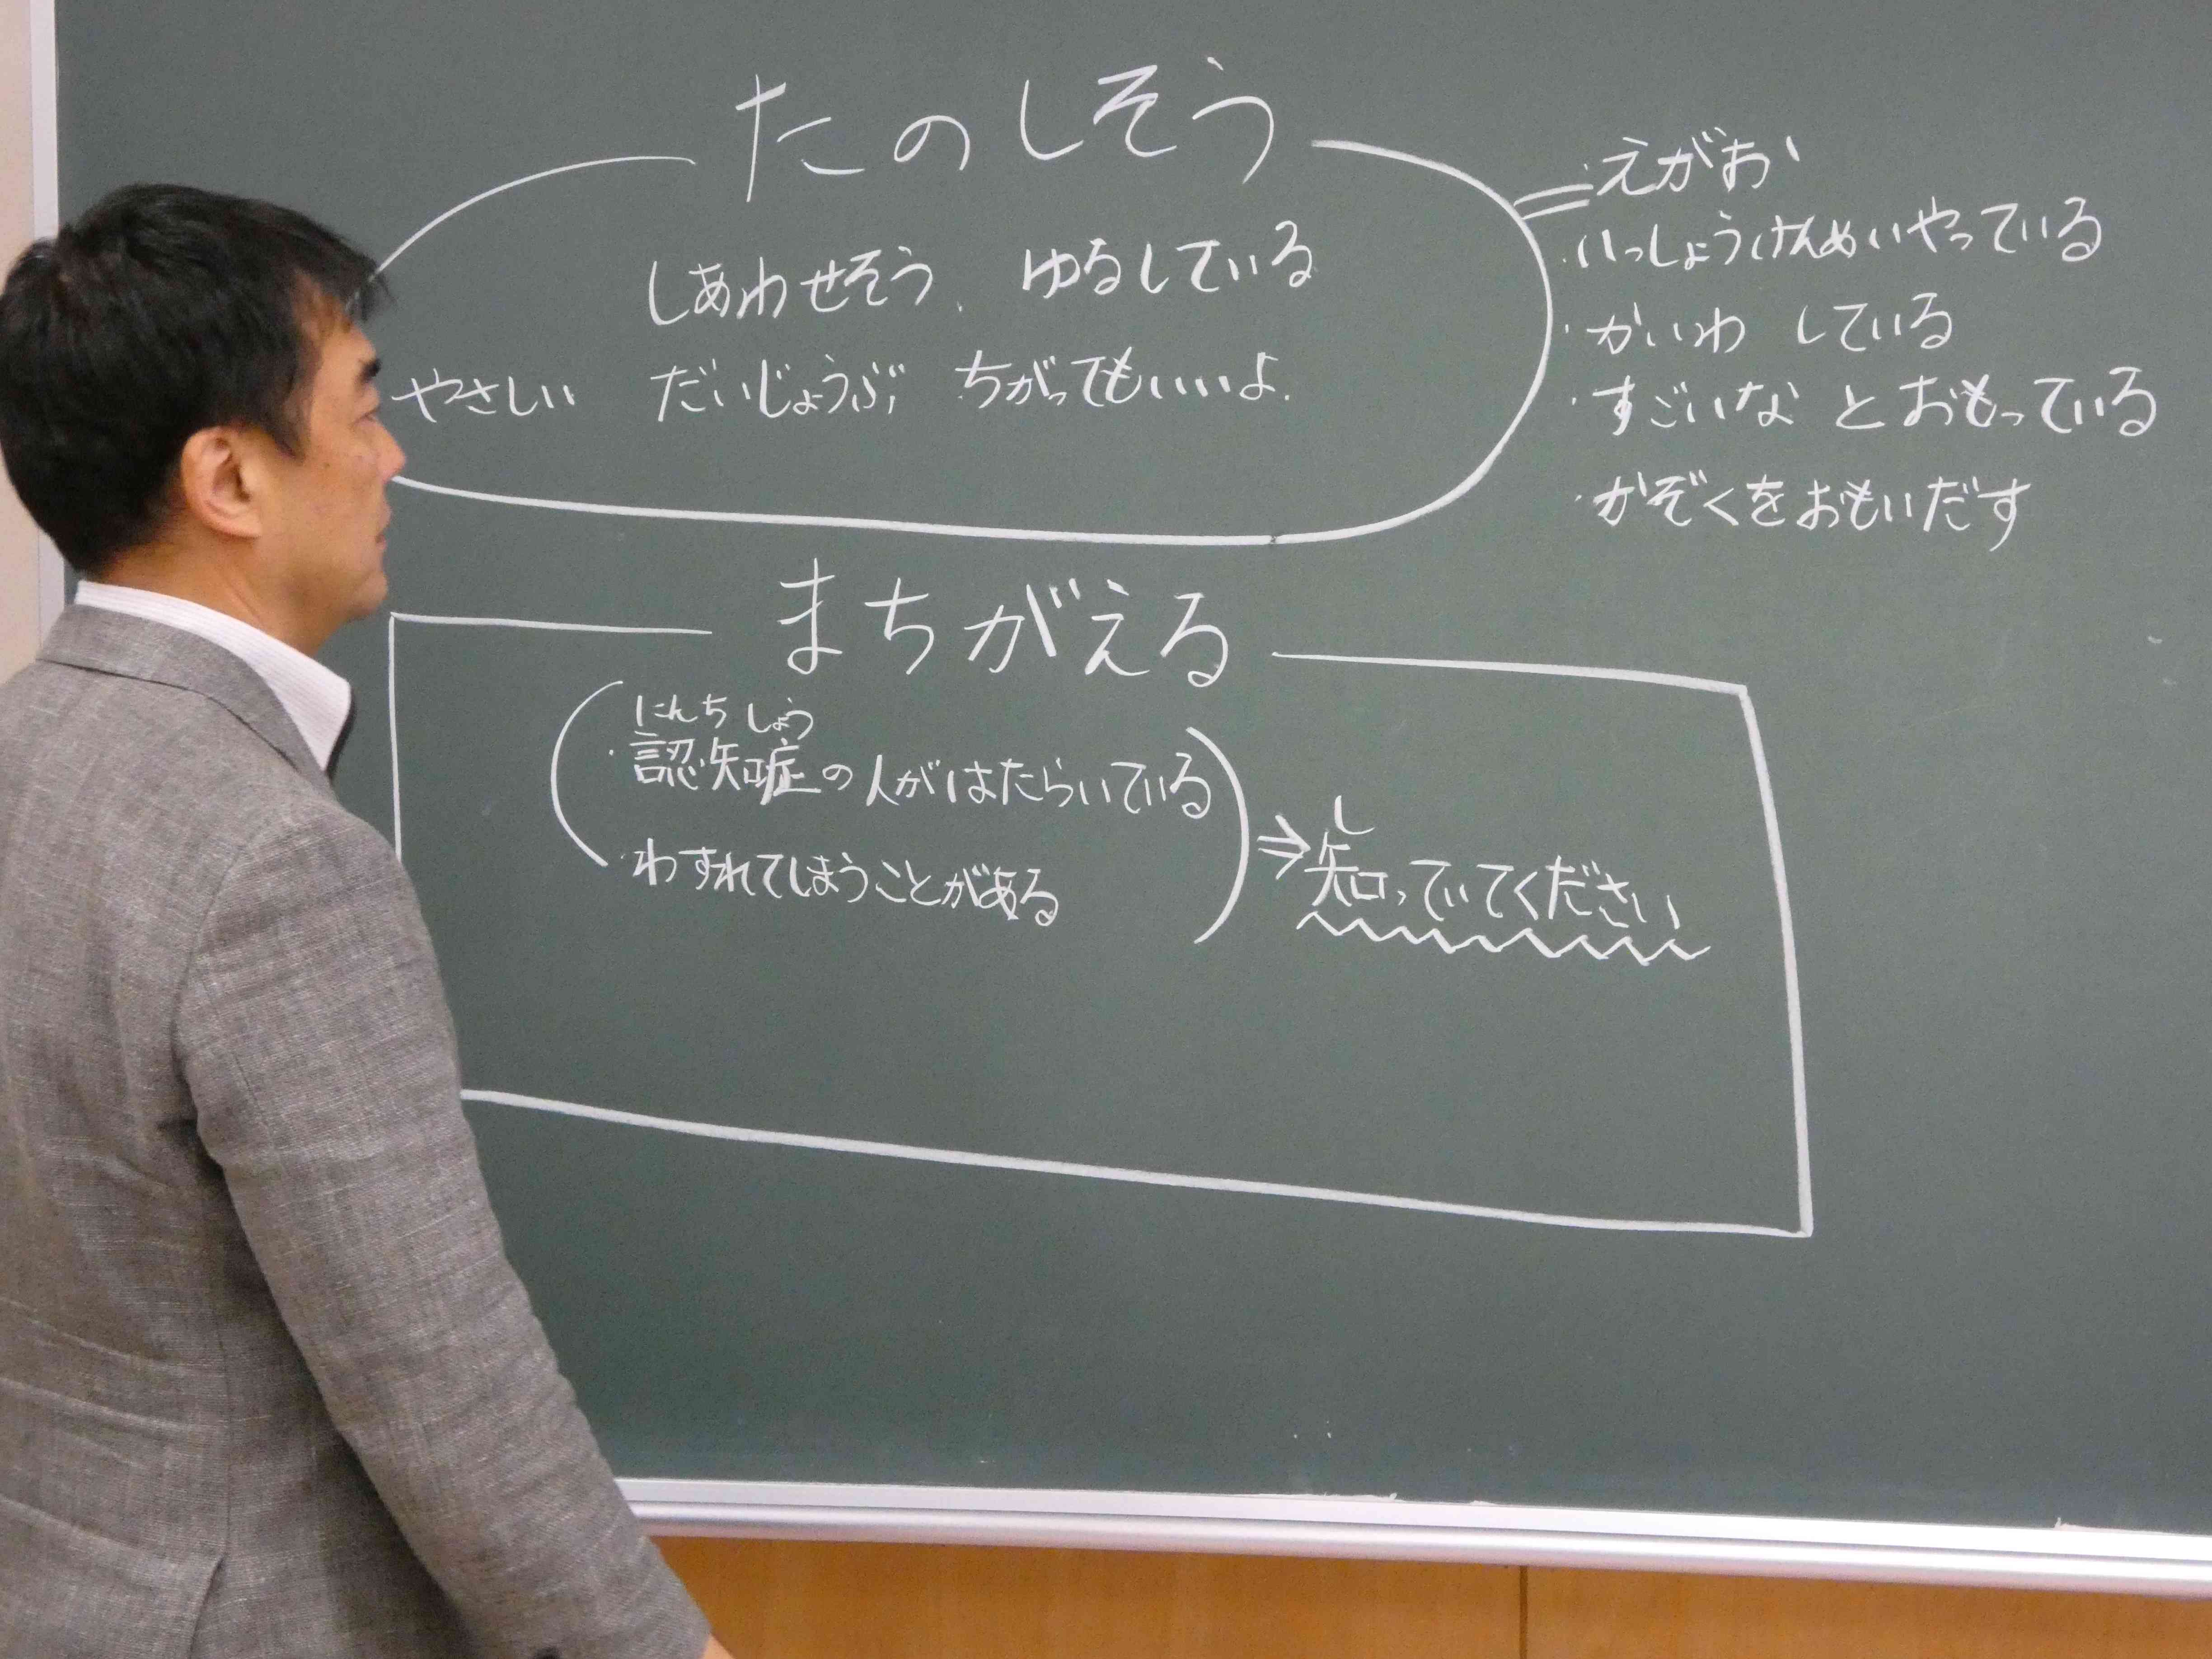 たのしそう
しあわせそう、ゆるしている
やさしい だいじょうぶ ちがってもいいよ.
・えがお
・いっしょうけんめいやっている
・かいわ している
・すごいな とおもっている
・かぞくをおもいだす
まちがえる
にんち しょう
・認知症の人がはたらいている
・わすれてしまうことがある
し
⇒知っていてください